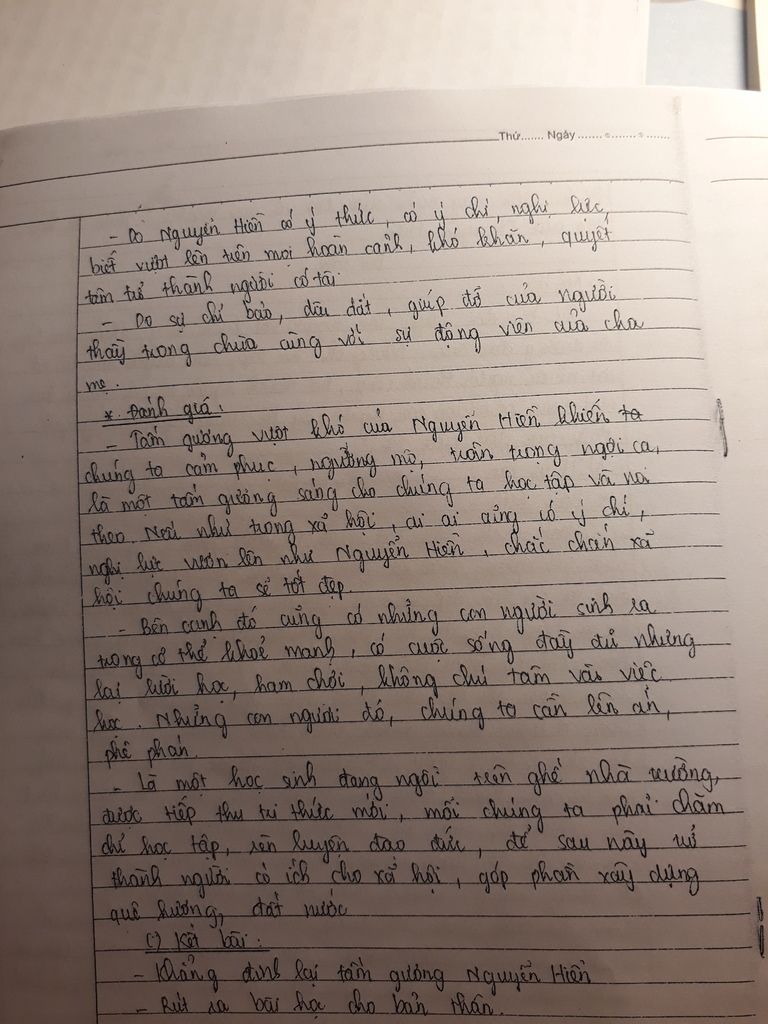 Thứ....... Ngày ....... ........ .......
- Do Nguyễn Hiền có ý thức, có ý chí, nghị lực,
biết vượt lên trên mọi hoàn cảnh, khó khăn, quyết
tâm trở thành người có tài.
- Do sự chỉ bảo, dìu dắt, giúp đỡ của người
thầy trong chùa cùng với sự động viên của cha
mẹ.
* Đánh giá:
- Tấm gương vượt khó của Nguyễn Hiền khiến ta
chúng ta cảm phục, ngưỡng mộ, trân trọng ngợi ca,
là một tấm gương sáng cho chúng ta học tập và noi
theo. Nếu như trong xã hội, ai ai cũng có ý chí,
nghị lực vươn lên như Nguyễn Hiền, chắc chắn xã
hội chúng ta sẽ tốt đẹp.
- Bên cạnh đó cũng có những con người sinh ra
trong cơ thể khoẻ mạnh, có cuộc sống đầy đủ nhưng
lại lười học, ham chơi, không chú tâm vào việc
học. Những con người đó, chúng ta cần lên án,
phê phán.
- Là một học sinh đang ngồi trên ghế nhà trường,
được tiếp thu tri thức mới, mỗi chúng ta phải chăm
chỉ học tập, rèn luyện đạo đức, để sau này trở
thành người có ích cho xã hội, góp phần xây dựng
quê hương, đất nước
c) Kết bài:
- Khẳng định lại tấm gương Nguyễn Hiền
- Rút ra bài học cho bản thân.